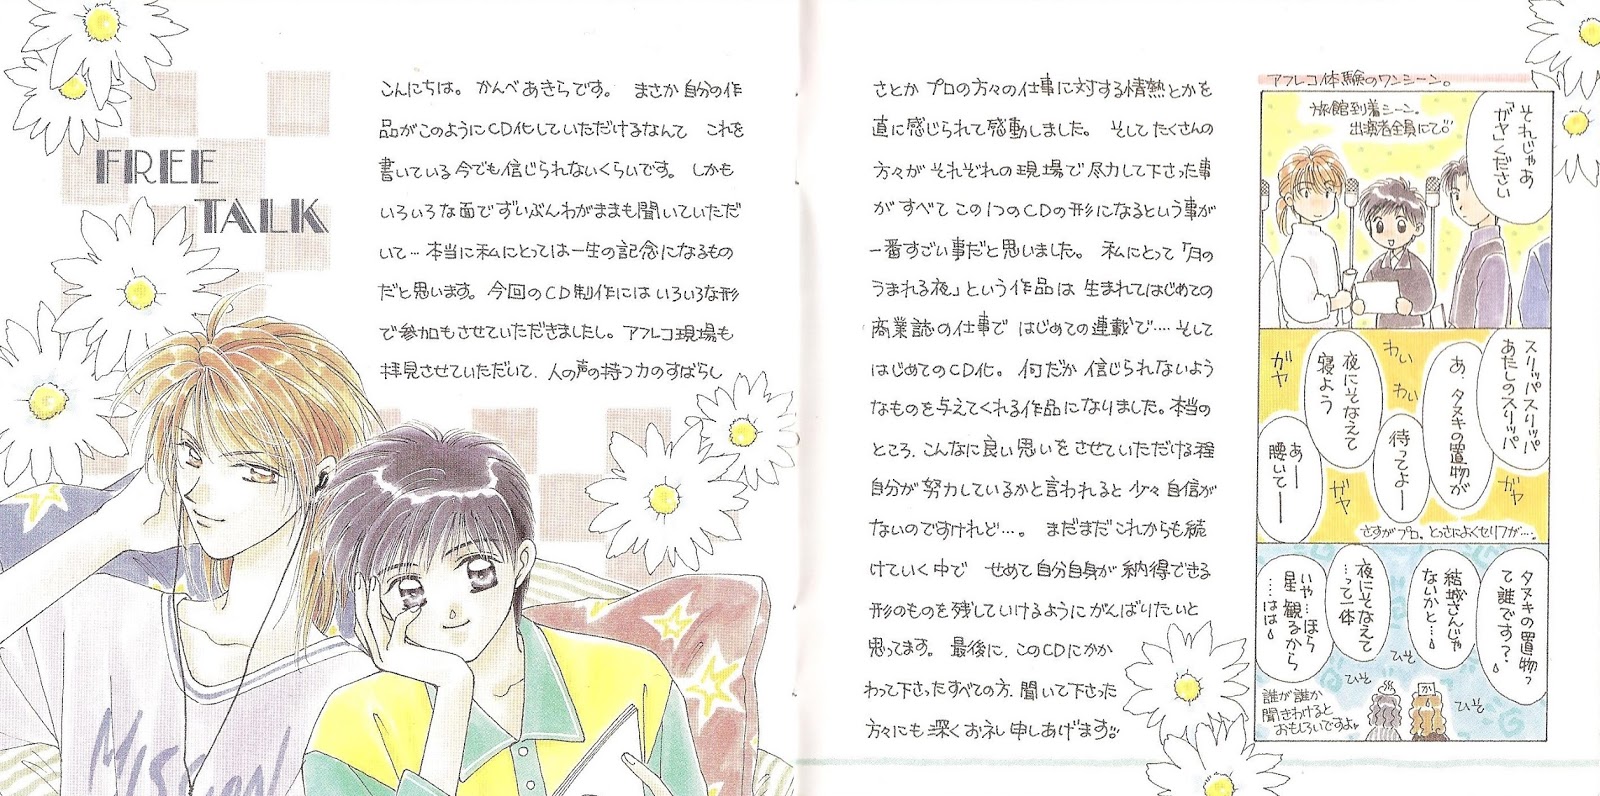 FREE
TALK
こんにちは。かんべあきらです。 まさか自分の作
品がこのようにCD化していただけるなんて これを
書いている今でも信じられないくらいです。しかも
いろいろな面でずいぶんわがままも聞いていただ
いて…本当に私にとっては一生の記念になるもの
だと思います。今回のCD制作にはいろいろな形
で参加もさせていただきましたし。アフレコ現場も
拝見させていただいて、人の声の持つ力のすばらし
さとか プロの方々の仕事に対する情熱とかを
直に感じられて感動しました。 そしてたくさんの
方々が それぞれの現場で尽力して下さった事
が すべて この1つのCDの形になるという事が
一番すごい事だと思いました。 私にとって「月の
うまれる夜」という作品は 生まれてはじめての
商業誌の仕事で はじめての連載で…そして
はじめてのCD化。 何だか信じられないよう
なものを与えてくれる作品になりました。本当の
ところ、こんなに良い思いをさせていただける程
自分が努力しているかと言われると少々自信が
ないのですけれど…。 まだまだこれからも続
けていく中で せめて自分自身が納得できる
形のものを残していけるようにがんばりたいと
思ってます。最後に、このCDにかか
わって下さったすべての方、聞いて下さった
方々にも深くお礼申しあげます。
アフレコ体験のワンシーン。
旅館到着シーン。
出演者全員にて
それじゃあ
「ガヤ」ください
スリッパスリッパ
あたしのスリッパ
あ、タヌキの置物が
わい
わい
待ってよー
夜にそなえて
寝よう
あー
腰いてー
ガヤ
ガヤ
ガヤ
さすがプロ。とっさによくセリフが…。
タヌキの置物?
て誰です??
結城さんじゃ
ないかと…
夜にそなえて
…って一体
いや…ほら
星観るから
…はは
ひそ
ひそ
ひそ
か
誰が誰か
聞きわけると
おもしろいですよ
MISSION